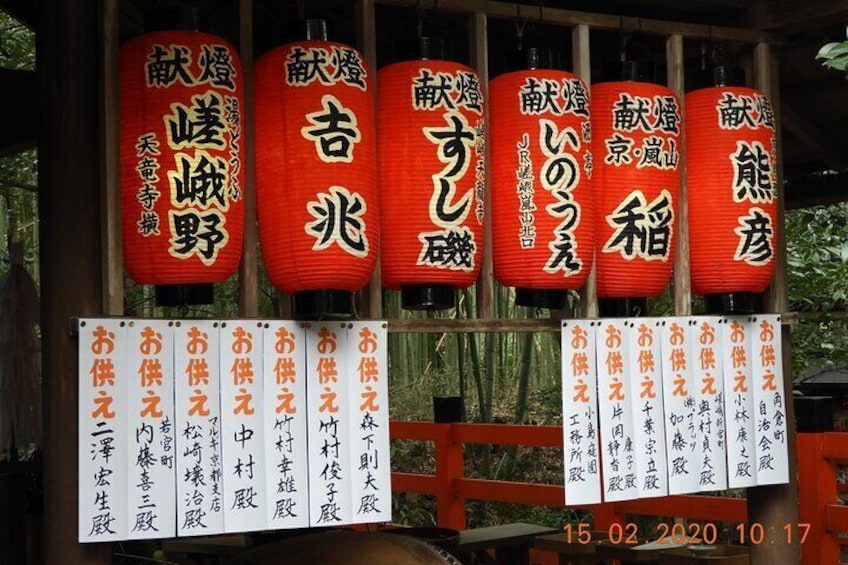 献燈
湯どうふ
嵯峨野
天竜寺横
献燈
吉兆
献燈
嵯峨天龍寺
すし磯
献燈
いのうえ
JR嵯峨嵐山北口
献燈
京・嵐山
稲
献燈
熊彦
お供え
二澤宏生殿
お供え
若宮町
内藤喜三殿
お供え
マルキ京都支店
松崎壌治殿
お供え
中村殿
お供え
竹村幸雄殿
お供え
竹村俊子殿
お供え
森下則夫殿
お供え
小島庭園
工務所殿
お供え
片岡靜香殿
慶子殿
お供え
千葉宗立殿
お供え
㈱プランツ
加藤殿
お供え
奥村貞殿
お供え
小林康之殿
お供え
角倉町
自治会殿
15.02.2020 10:17